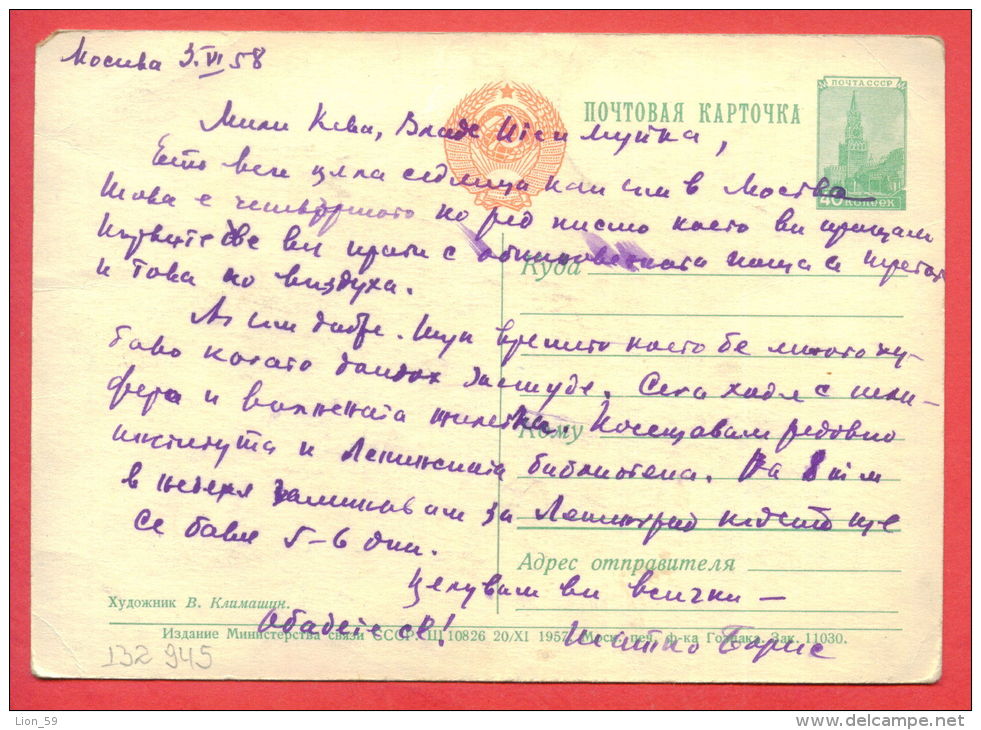 Москва 3.VI 58
ПОЧТА СССР
40 КОПЕЕК
ПОЧТОВАЯ КАРТОЧКА
Мили Кева, Владе и
Ето вече цяла седмица как съм в Москва
Това е четвъртото по ред писмо което ви пращам
две ви прати с обикновенната поща а третото
и това по въздуха.
Аз съм добре. времето което бе много ху-
баво когато дойдох застуде. Сега ходя с шли-
фера и вълнената жилетка. Посещавам редовно
института и Ленинската библиотека. На 8 т.м
в неделя заминавам за Ленинград където ще
се бавя 5-6 дни.
Целувам ви всички —
Обадете се!
Борис
Куда
Кому
Адрес отправителя
Художник В. Климашин.
Издание Министерства связи СССР. Щ 10826 20/XI 1957. Моск. печ. ф-ка Гознака. Зак. 11030.
132 945
Lion_59
www.delcampe.net